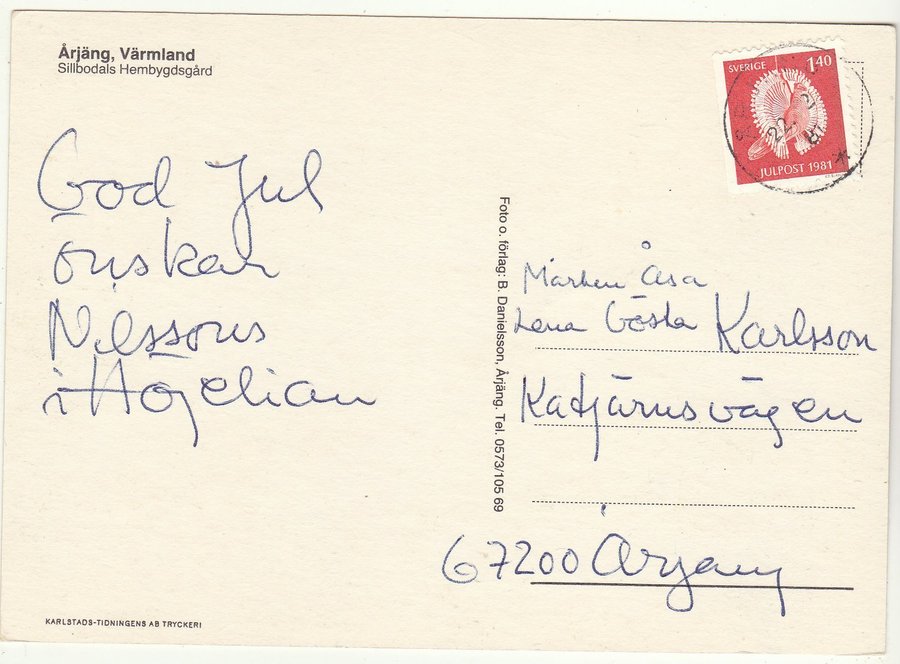 Årjäng, Värmland
Sillbodals Hembygdsgård
SVERIGE 1.40
JULPOST 1981
22. 81
God Jul
önskar
Nilssons
i Högelian
Foto o. förlag: B. Danielsson, Årjäng. Tel. 0573/105 69
Mårten Åsa
Lena Gösta Karlsson
Katjärnsvägen
67200 Årjäng
KARLSTADS-TIDNINGENS AB TRYCKERI